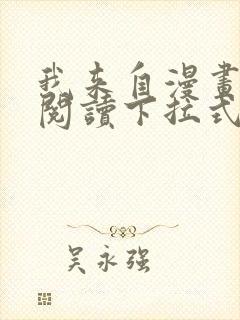 我来自漫畫
閱讀下拉式
吴永强